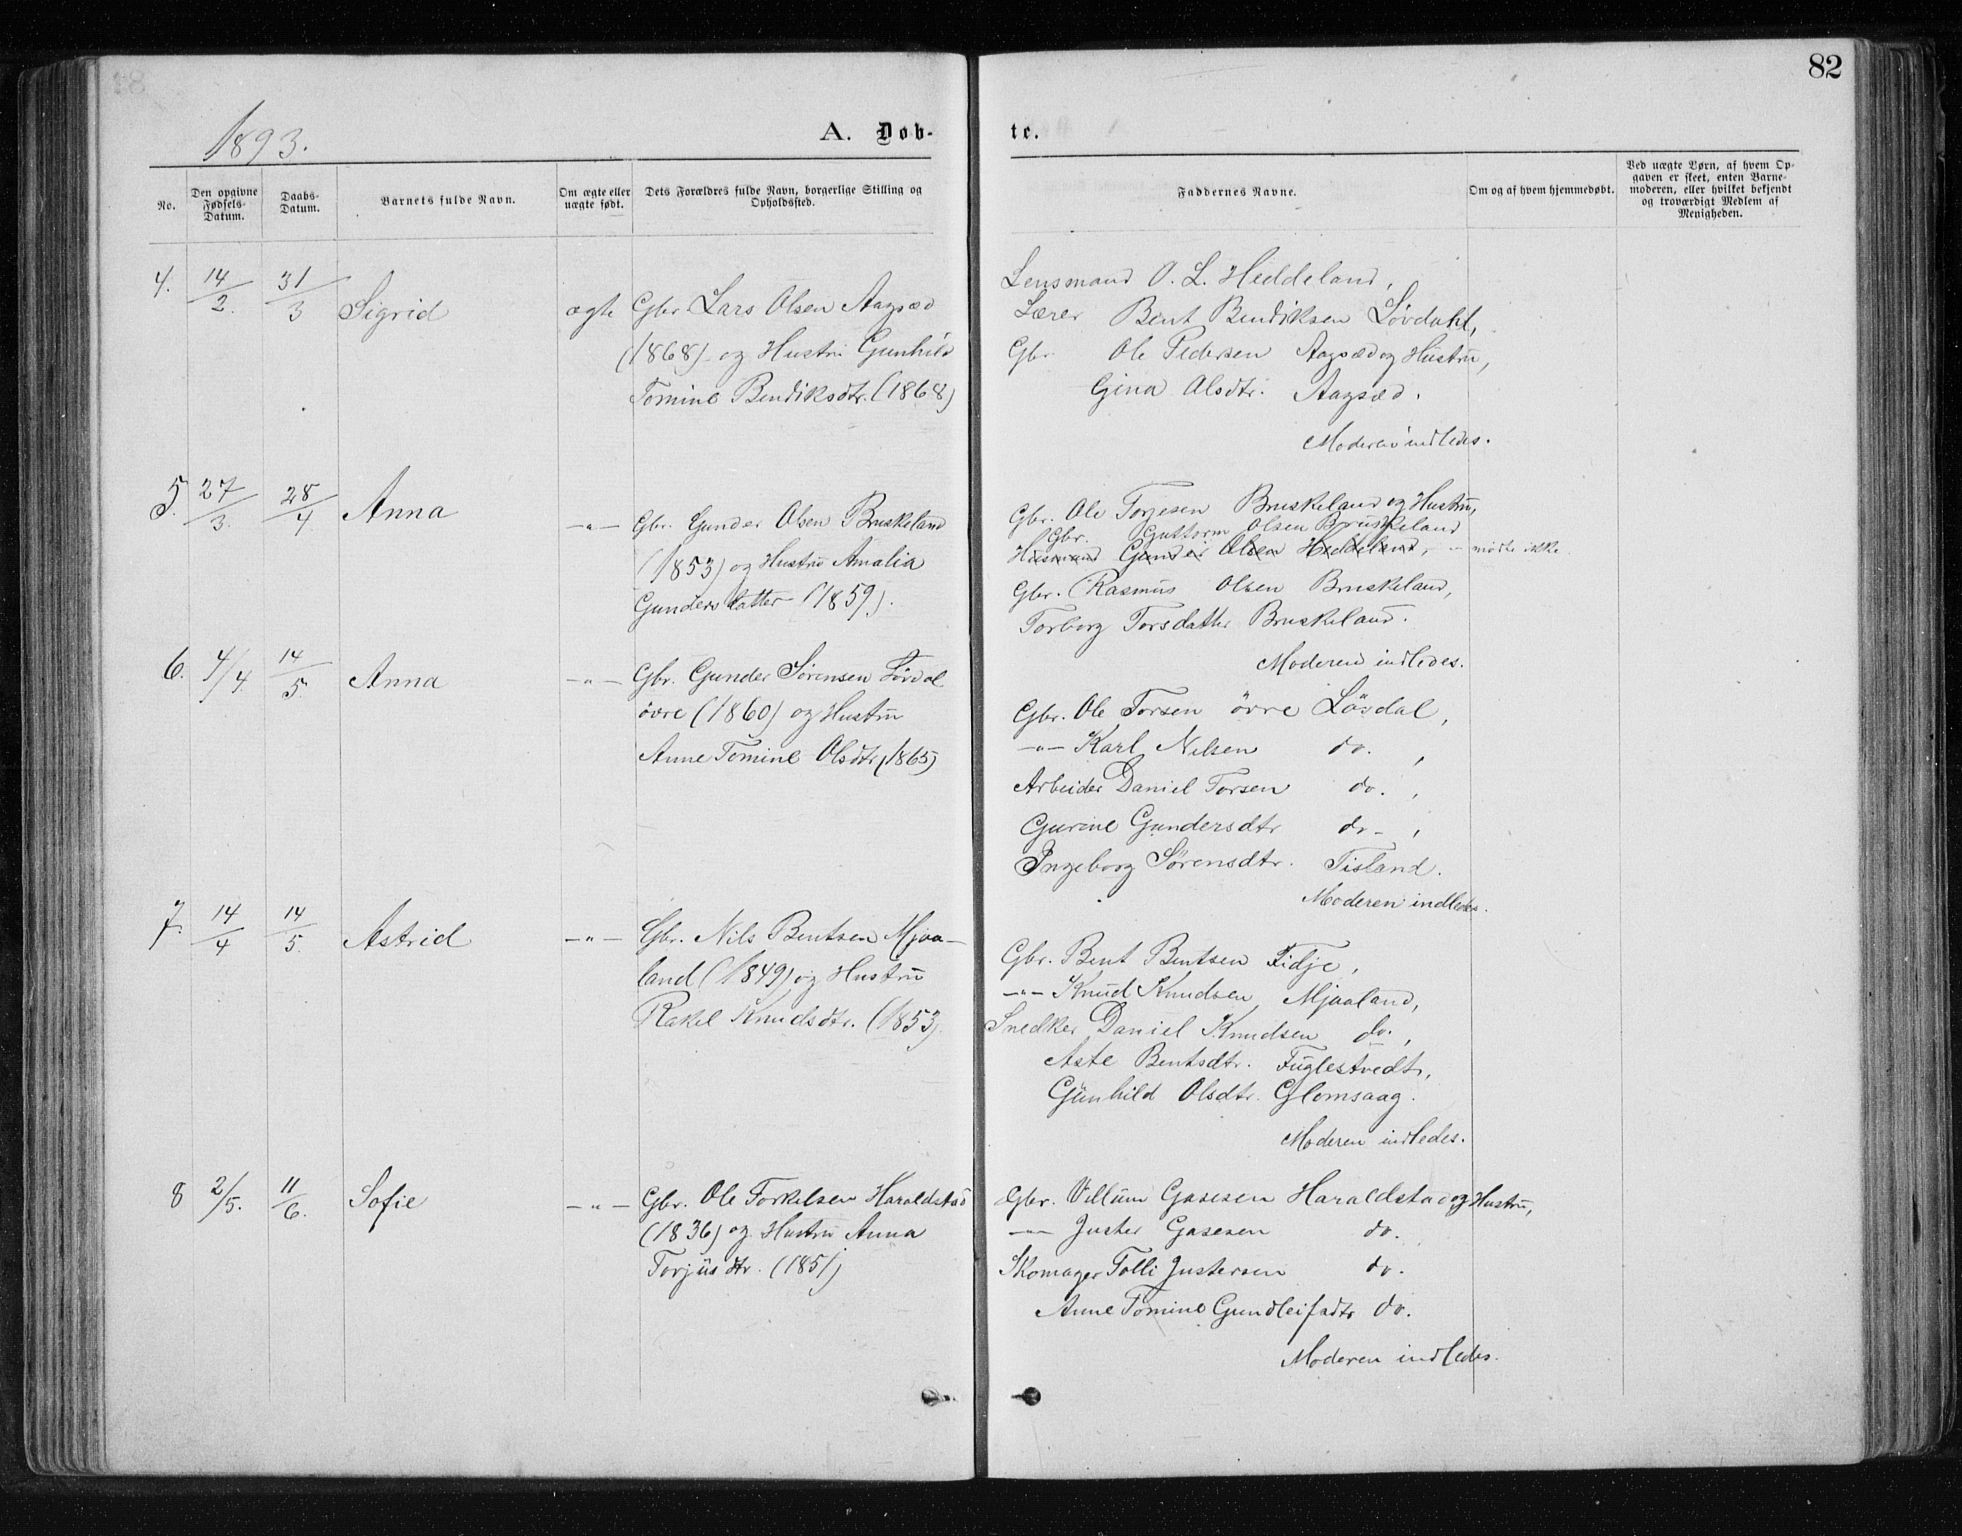 82
1893.
A. Døb-
te.
No.
Den opgivne Fødsels-Datum.
Daabs-Datum.
Barnets fulde Navn.
Om ægte eller uægte født.
Dets Forældres fulde Navn, borgerlige Stilling og Opholdssted.
Faddernes Navne.
Om og af hvem hjemmedøbt.
Ved uægte Børn, af hvem Op-
gaven er skeet, enten Barne-
moderen, eller hvilket bekjendt
og troværdigt Medlem af
Menigheden.
4. 14/2. 31/3 Sigrid ægte Gbr. Lars Olsen Aagsæd
(1868) og Hustru Gunhild
Tomine Bendiksdtr. (1868)
Lensmand O. L. Heddeland,
Lærer Bent Bendiksen Lövdahl,
Gbr Ole Pedersen Aagsæd og Hustru,
Gina Olsdtr. Aagsæd.
Moderen indledes.
5. 27/3. 28/4 Anna -"- Gbr. Gunder Olsen Bruskeland
(1853) og Hustru Amalia
Gundersdatter (1859).
Gbr. Ole Torjesen Bruskeland og Hustru,
Gbr. Guttorm Olsen Bruskeland
Husmand Gunder Olsen Heddeland, - mødte ikke
Gbr. Rasmus Olsen Bruskeland,
Torborg Torsdatter Bruskeland.
Moderen indledes.
6. 4/4 14/5. Anna -"- Gbr. Gunder Sørensen Løvdal
øvre (1860) og Hustru
Anne Tomine Olsdtr (1865)
Gbr. Ole Torsen övre Lövdal,
-"- Karl Nilsen do. ,
Arbeider Daniel Torsen do. ,
Gurine Gundersdtr do - ,
Ingeborg Sørensdtr. Tisland.
Moderen indledes.
7. 14/4 14/5. Astrid -"- Gbr. Nils Bentsen Mjaa-
land (1849) og Hustru
Rakel Knudsdtr. (1853).
Gbr. Bent Bentsen Fidje,
-"- Knud Knudsen Mjaaland,
Snedker Daniel Knudsen do.,
Aste Bentsdtr. Fuglestvedt,
Gunhild Olsdtr. Glomsaag.
Moderen indledes.
8 2/5. 11/6. Sofie -"- Gbr. Ole Torkelsen Haraldstad
(1836) og Hustru Anna
Torjusdtr. (1851)
Gbr. Villum Gasesen Haraldstad og Hustru,
-"- Juster Gasesen do.
Skomager Tolli Justersen do.
Anne Tomine Gundleifsdtr do.
Moderen indledes.